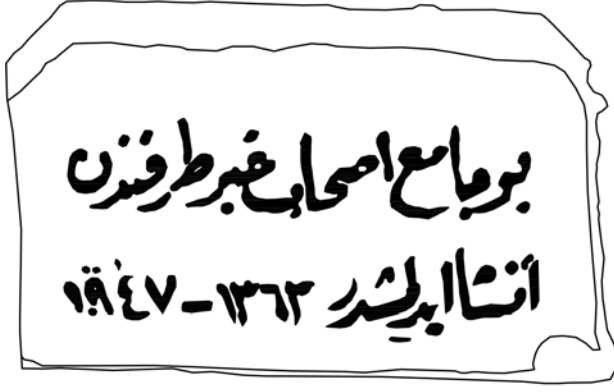 بو جامع اصحاب خير طرفندن
أنشا ايدلمشدر ١٣٦٣ - ١٩٤٧